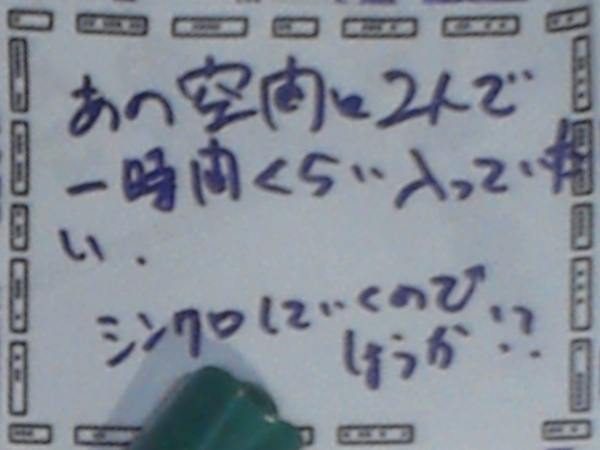 あの空間に2人で
一時間くらい入っていた
い.
シンクロしていくので
しょうか!?